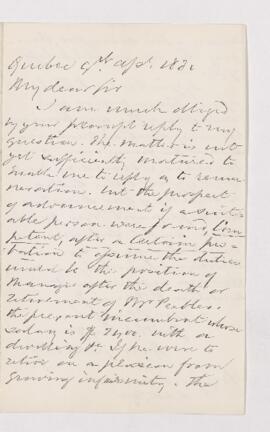 Quebec 9th Apl. 1881
My dear Sir
I am much obliged
by your prompt reply to my
question. The matter is not
yet sufficiently matured to
enable me to reply as to remu-
neration. but the prospect
of advancement if a suit-
able person were found, Com-
petent, after a certain pro-
bation to assume the duties
would be the position of
Manager after the death or
retirement of Mr Peebles.
the present incumbent whose
salary is with a
dwelling &c If he were to
retire on a pension from
growing infirmity. The